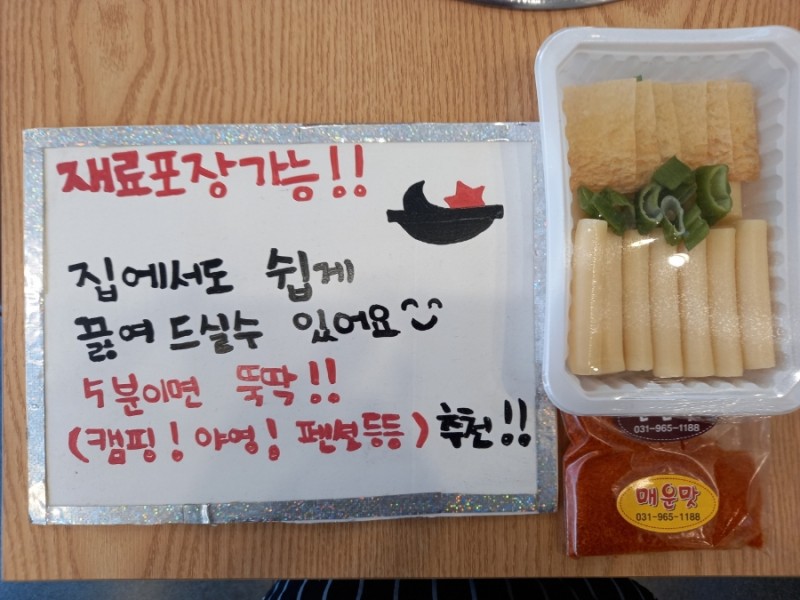 재료포장가능!!
집에서도 쉽게
끓여 드실수 있어요
5분이면 뚝딱!!
(캠핑! 야영! 펜션등등) 추천!!
031-965-1188
매운맛
031-965-1188